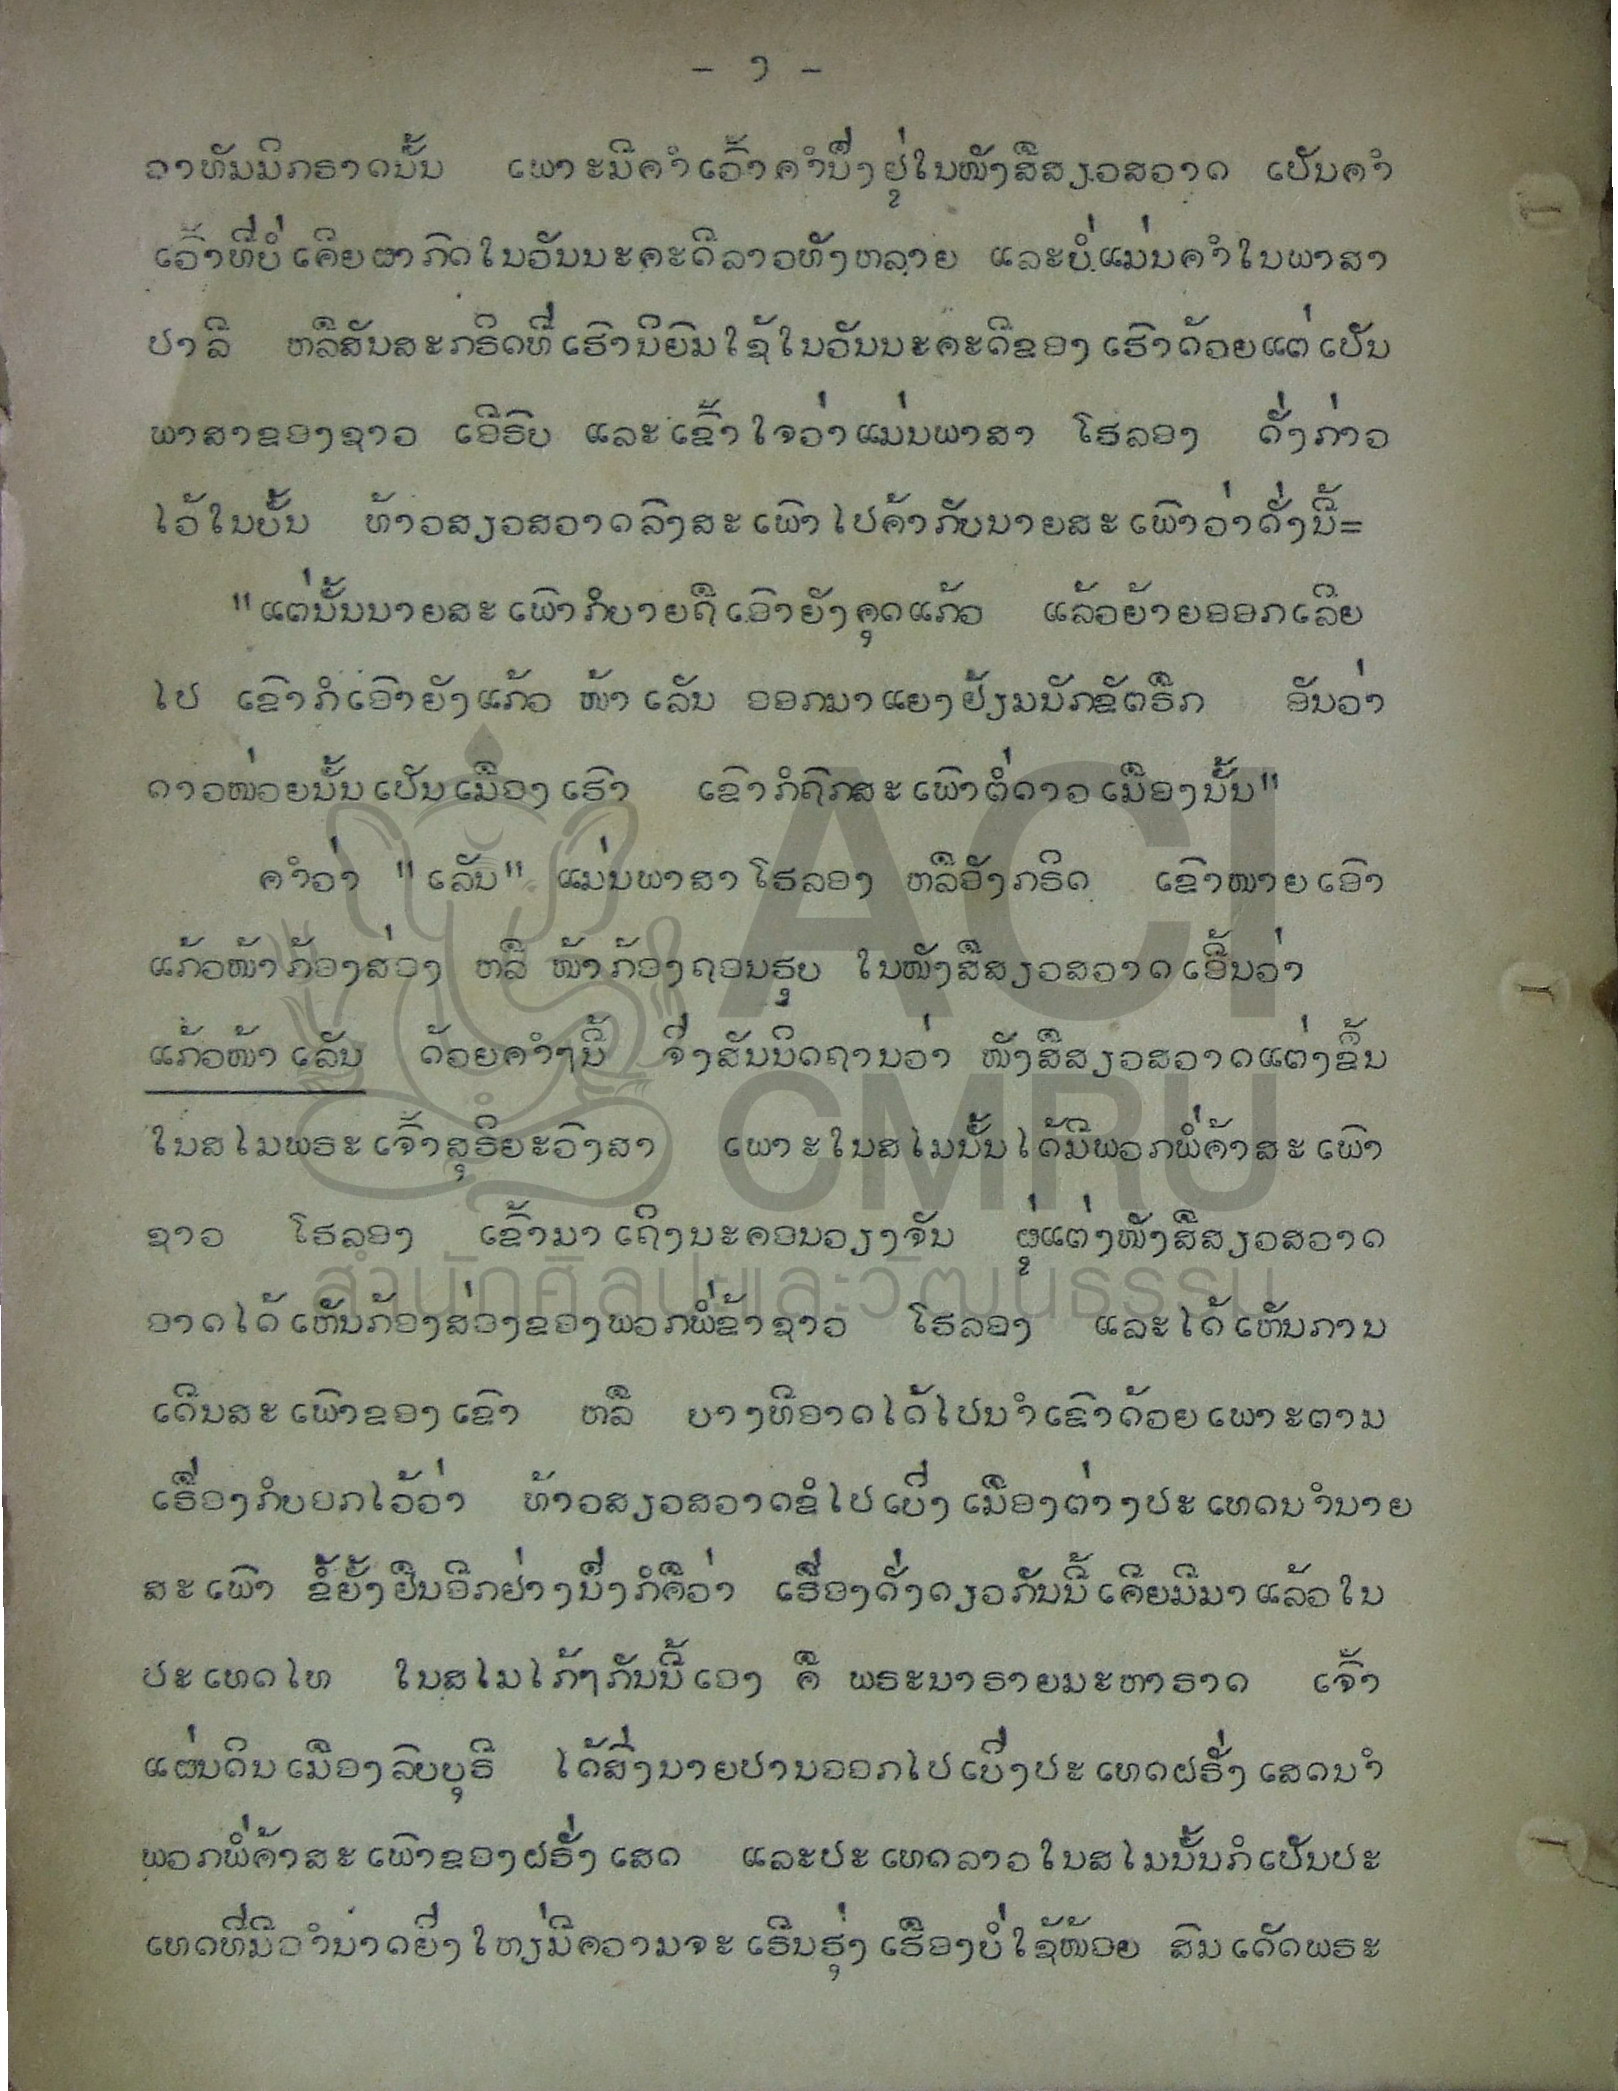 - ໆ -
ວາທັມມິກຣາດນັ້ນ ເພາະມີຄຳເວົ້າຄຳນຶ່ງຢູ່ໃນໜັງສືສຽວສວາດ ເປັນຄຳ
ເວົ້າທີ່ບໍ່ເຄີຍຜາກົດໃນວັນນະຄະດີລາວທັງຫລາຍ ແລະບໍ່ແມ່ນຄຳໃນພາສາ
ປາລີ ຫລືສັນສະກຣິດທີ່ເຮົານິຍົມໃຊ້ໃນວັນນະຄະດີຂອງເຮົາດ້ວຍແຕ່ເປັນ
ພາສາຂອງຊາວ ເອີຣົບ ແລະເຂົ້າໃຈວ່າແມ່ນພາສາ ໂຮລອງ ດັ່ງກ່າວ
ໄວ້ໃນບັ້ນ ທ້າວສຽວສວາດລົງສະເພົາໄປຄ້າກັບນາຍສະເພົາວ່າດັ່ງນີ້=
"ແຕ່ນັ້ນນາຍສະເພົາກໍບາຍຖືເອົາຍັງຄຸດແກ້ວ ແລ້ວຍ້າຍອອກເລີຍ
ໄປ ເຂົາກໍເອົາຍັງແກ້ວ ໜ້າເລັນ ອອກມາແຍງຢ້ຽມນັກຂັຕຣືກ ອັນວ່າ
ດາວໜ່ວຍນັ້ນເປັນເມືອງເຮົາ ເຂົາກໍຖົກສະເພົາຕໍ່ດາວເມືອງນັ້ນ"
ຄຳວ່າ "ເລັນ" ແມ່ນພາສາໂຮລອງ ຫລືອັງກຣິດ ເຂົາໝາຍເອົາ
ແກ້ວໜ້າກ້ອງສ່ອງ ຫລື ໜ້າກ້ອງຖອນຮູບ ໃນໜັງສືສຽວສວາດເອີ້ນວ່າ
ແກ້ວໜ້າເລັນ ດ້ວຍຄຳໆນີ້ ຈຶ່ງສັນນິດຖານວ່າ ໜັງສືສຽວສວາດແຕ່ງຂຶ້ນ
ໃນສໄມພຣະເຈົ້າສຸຣິຍະວົງສາ ເພາະໃນສໄມນັ້ນໄດ້ມີພວກພໍ່ຄ້າສະເພົາ
ຊາວ ໂຮລອງ ເຂົ້າມາເຖິງນະຄອນວຽງຈັນ ຜູ່ແຕ່ງໜັງສືສຽວສວາດ
ອາດໄດ້ເຫັນກ້ອງສ່ອງຂອງພວກພໍ່ຂ້າຊາວ ໂຮລອງ ແລະໄດ້ເຫັນການ
ເດີນສະເພົາຂອງເຂົາ ຫລື ບາງທີອາດໄດ້ໄປນຳເຂົາດ້ວຍເພາະຕາມ
ເຣື່ອງກໍບອກໄວ້ວ່າ ທ້າວສຽວສວາດຂໍໄປເບິ່ງເມືອງຕ່າງປະເທດນຳນາຍ
ສະເພົາ ຂໍ້ຍັ້ງຢືນອີກຢ່າງນຶ່ງກໍຄືວ່າ ເຣື່ອງດັ່ງດຽວກັນນີ້ເຄີຍມີມາແລ້ວໃນ
ປະເທດໄທ ໃນສໄມໄກ້ໆກັນນີ້ເອງ ຄື ພຣະນາຣາຍມະຫາຣາດ ເຈົ້າ
ແຜ່ນດິນເມືອງລົບບຸຣີ ໄດ້ສົ່ງນາຍປານອອກໄປເບິ່ງປະເທດຝຣັ່ງເສດນຳ
ພວກພໍ່ຄ້າສະເພົາຂອງຝຣັ່ງເສດ ແລະປະເທດລາວໃນສໄມນັ້ນກໍເປັນປະ
ເທດທີ່ມີອຳນາດຍິ່ງໃຫຽ່ມີຄວາມຈະເຣີນຮຸ່ງເຮືອງບໍ່ໃຊ້ໜ້ອຍ ສົມເດັດພຣະ
ACI
CMRU
สำนักศิลปะและวัฒนธรรม